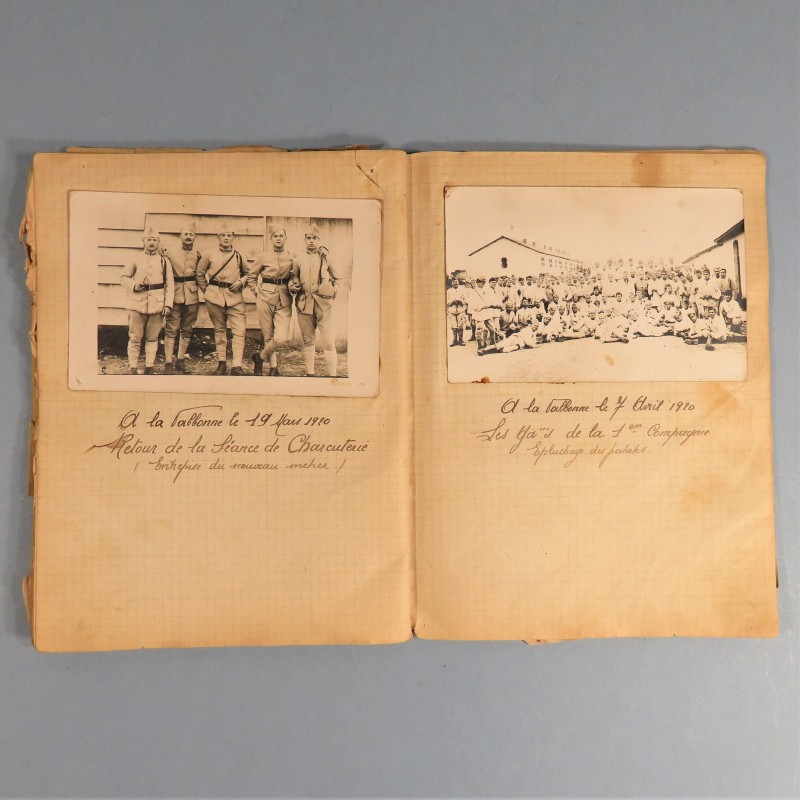 A la Valbonne le 19 Mars 1920
Retour de la Séance de Charcuterie
( Entrepise du nouveau métier :)
A la Valbonne le 7 Avril 1920
Les de la 1ère Compagnie
Epluchage des patates.